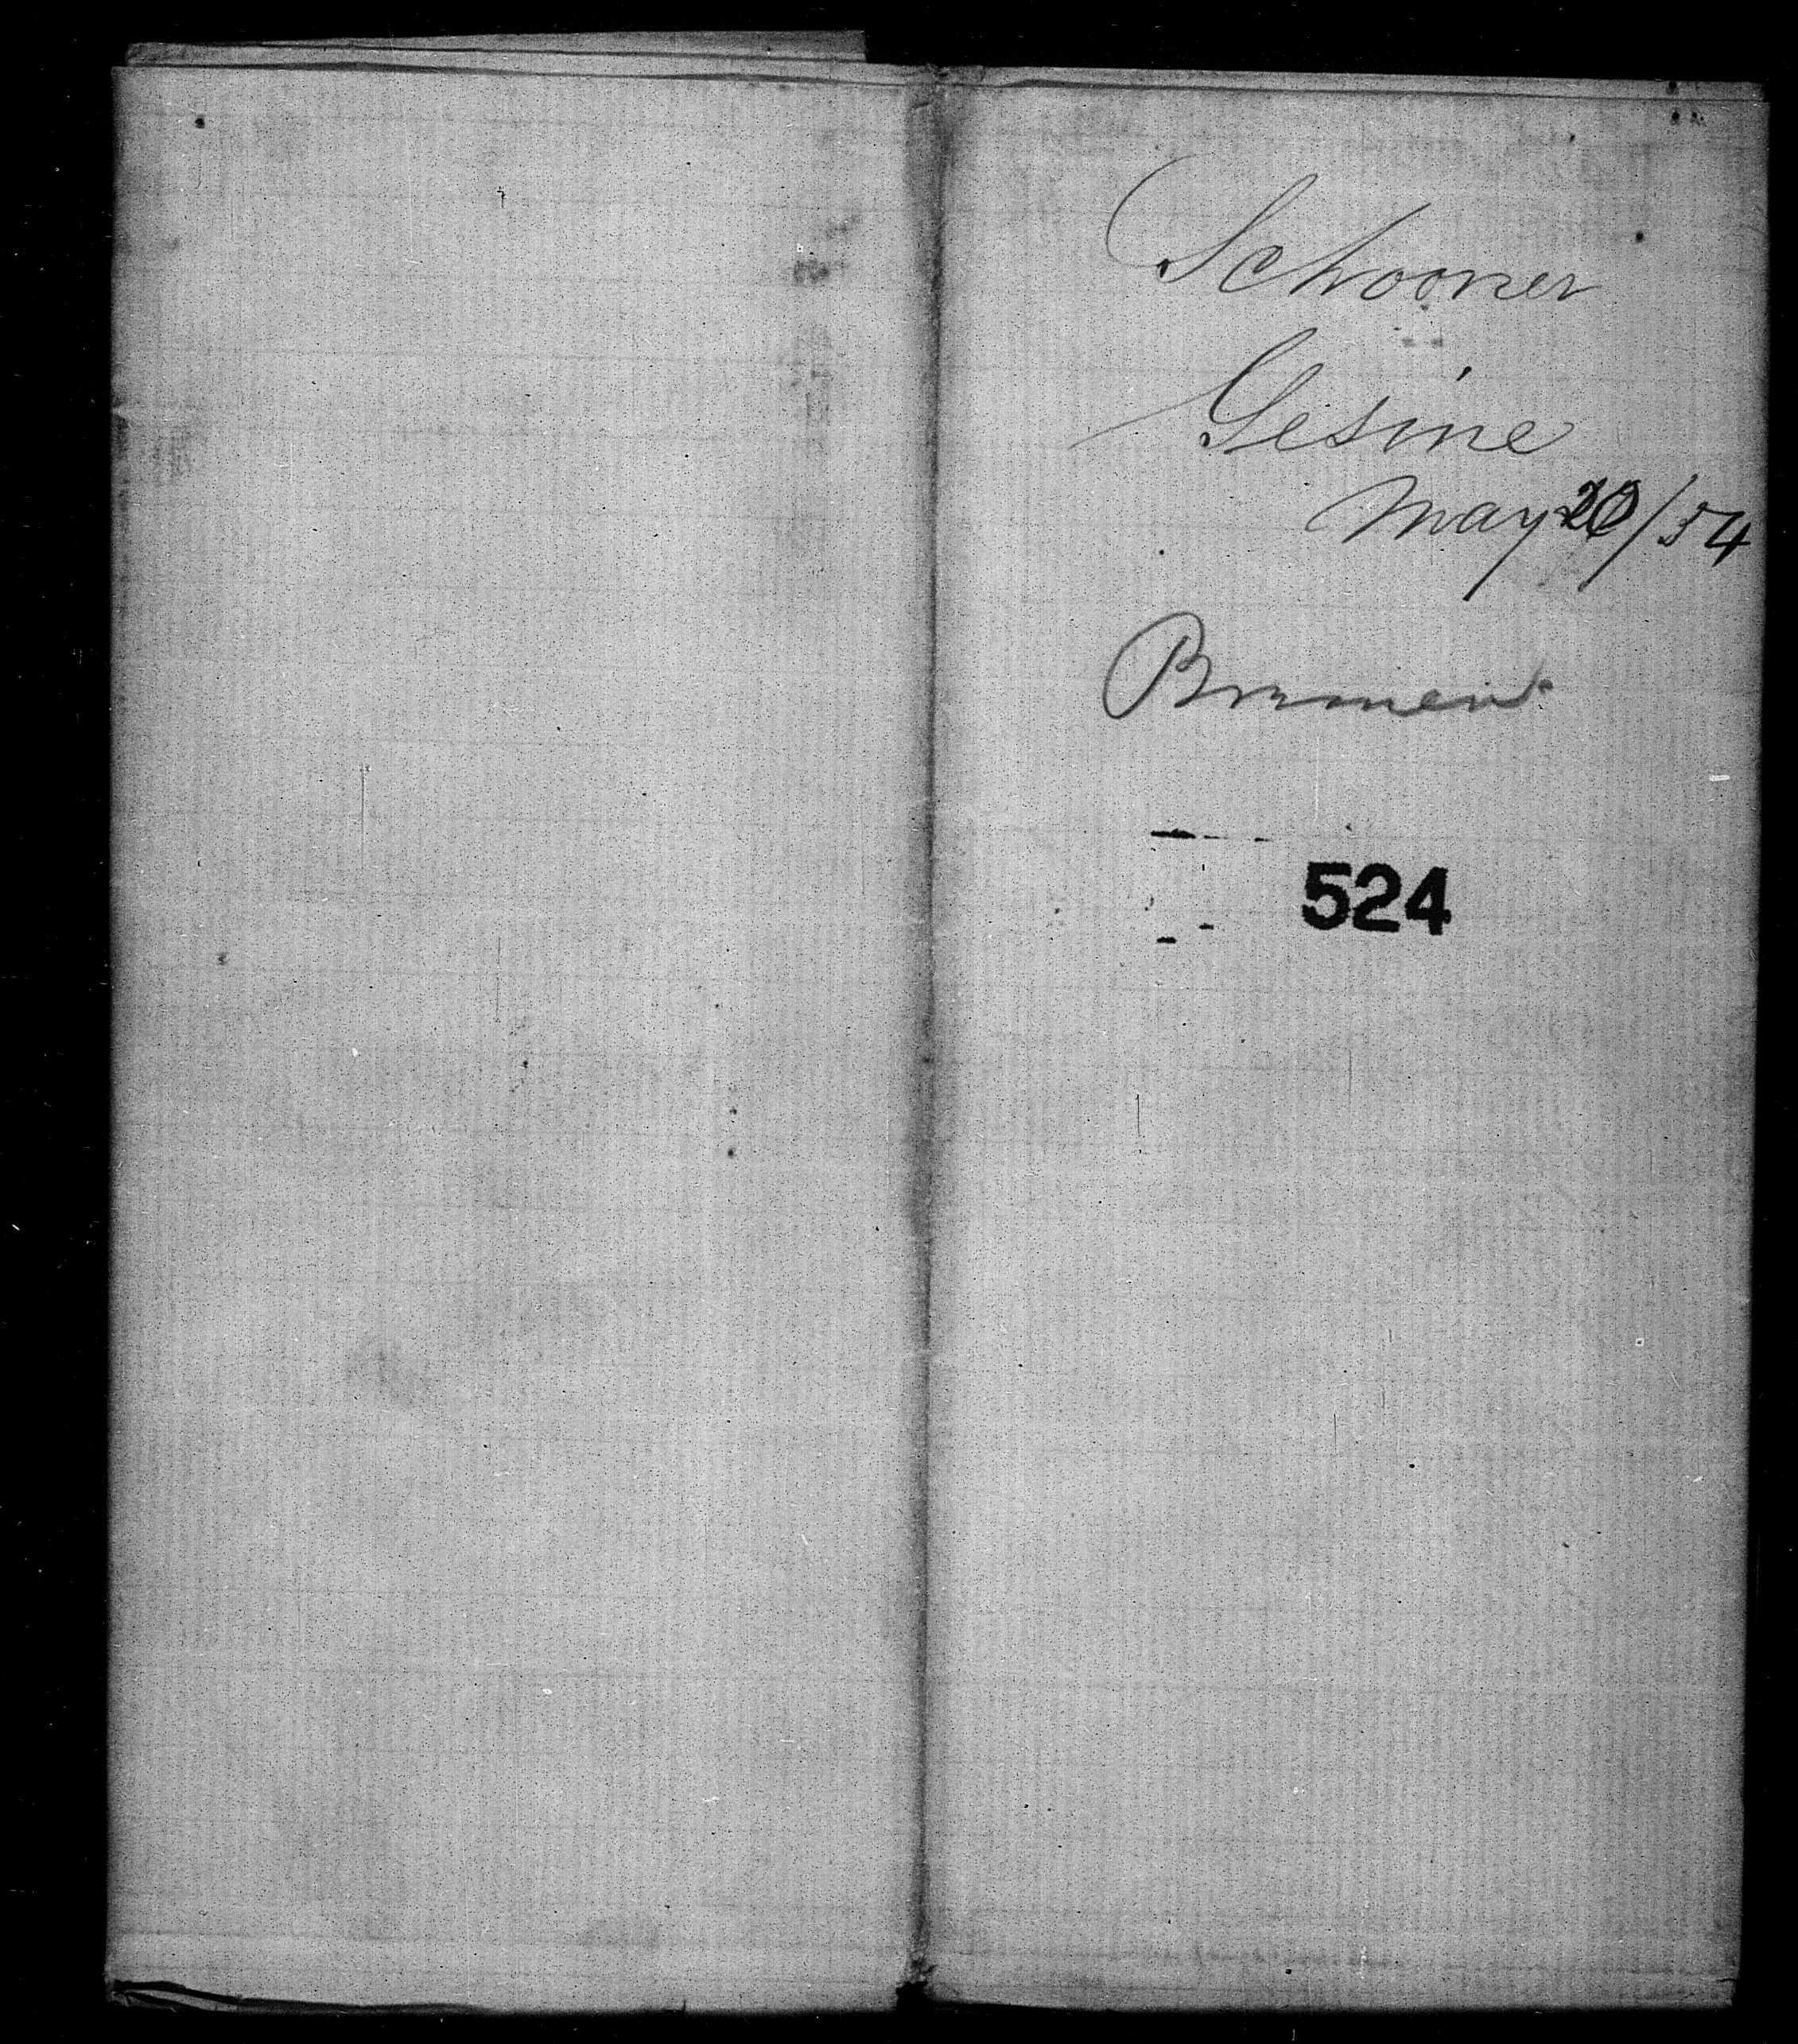 Schooner
Gesine
May 20/54
Bremen
524